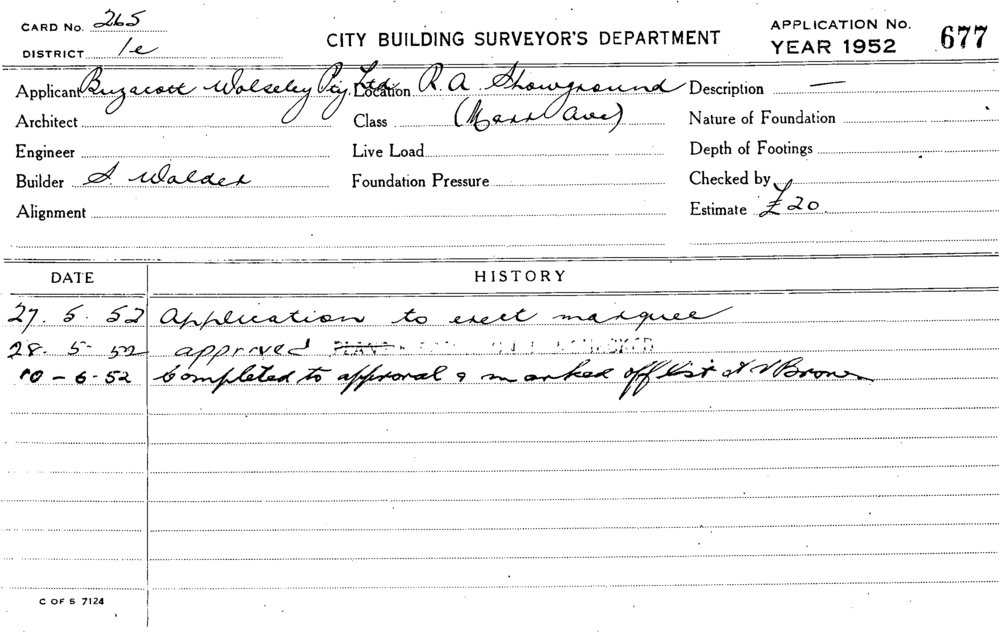 CARD No. 265
DISTRICT 1e
CITY BUILDING SURVEYOR'S DEPARTMENT
APPLICATION No.
YEAR 1952
677
Applicant Buzacott Wolseley Pty Ltd. Location R.A. Showground Description —
Architect Class (Mann Ave) Nature of Foundation
Engineer Live Load Depth of Footings
Builder S. Walder Foundation Pressure Checked by
Alignment Estimate £20
DATE HISTORY
27. 5. 52 Application to erect marquee
28. 5 52 approved
10-6-52 Completed to approval & marked off list
C OF S 7124